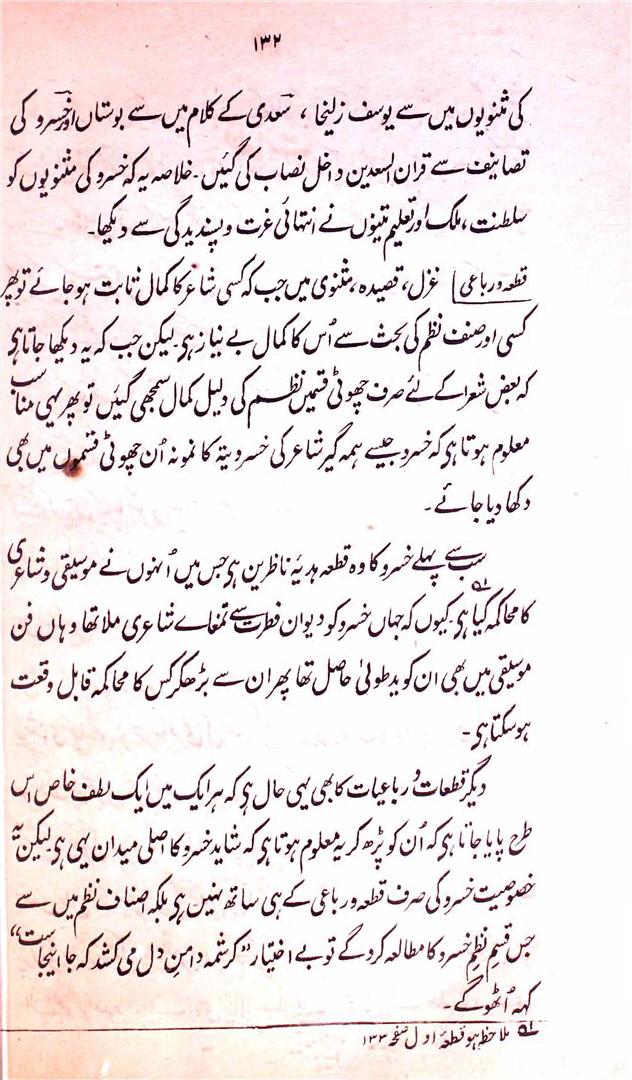 ۱۳۲
کی مثنویوں میں سے یوسف زلیخا ، سعدی کے کلام میں سے بوستاں اور خسرو کی
تصانیف سے قران السعدین داخل نصاب کی گئیں۔ خلاصہ یہ کہ خسرو کی مثنویوں کو
سلطنت ، ملک اور تعلیم تینوں نے انتہائی عزت و پسندیدگی سے دیکھا۔
قطعہ و رباعی غزل ، قصیدہ ، مثنوی میں جب کہ کسی شاعر کا کمال ثابت ہو جائے تو پھر
کسی اور صنف نظم کی بحث سے اُس کا کمال بے نیاز ہی لیکن جب کہ یہ دیکھا جاتا ہی
کہ بعض شعرا کے لئے صرف چھوٹی قسمیں نظم کی دلیل کمال سمجھی گئیں تو پھر یہی مناسب
معلوم ہوتا ہی کہ خسرو جیسے ہمہ گیر شاعر کی خسرویۃ کا نمونہ اُن چھوٹی قسموں میں بھی
دکھا دیا جائے۔
سب سے پہلے خسرو کا وہ قطعہ ہدیۂ ناظرین ہی جس میں اُنہوں نے موسیقی و شاعری
کا محاکمہ کیا ہی ۱ کیوں کہ جہاں خسرو کو دیوان فطرت سے تمغاے شاعری ملا تھا وہاں فن
موسیقی میں بھی ان کو ید طولیٰ حاصل تھا پھر ان سے بڑھ کر کس کا محاکمہ قابل وقعت
ہو سکتا ہی۔
دیگر قطعات و رباعیات کا بھی یہی حال ہی کہ ہر ایک میں ایک لطف خاص اس
طرح پایا جاتا ہی کہ اُن کو پڑھ کر یہ معلوم ہوتا ہی کہ شاید خسرو کا اصلی میدان یہی ہی لیکن یہ
خصوصیت خسرو کی صرف قطعہ و رباعی کے ہی ساتھ نہیں ہی بلکہ اصناف نظم میں سے
جس قسم نظم خسرو کا مطالعہ کرو گے تو بے اختیار ”کرشمہ دامنِ دل می کشد کہ جا اینجاست“
کہہ اُٹھو گے۔
۱ ملاحظہ ہو قطعہ اول صفحہ ۱۳۳